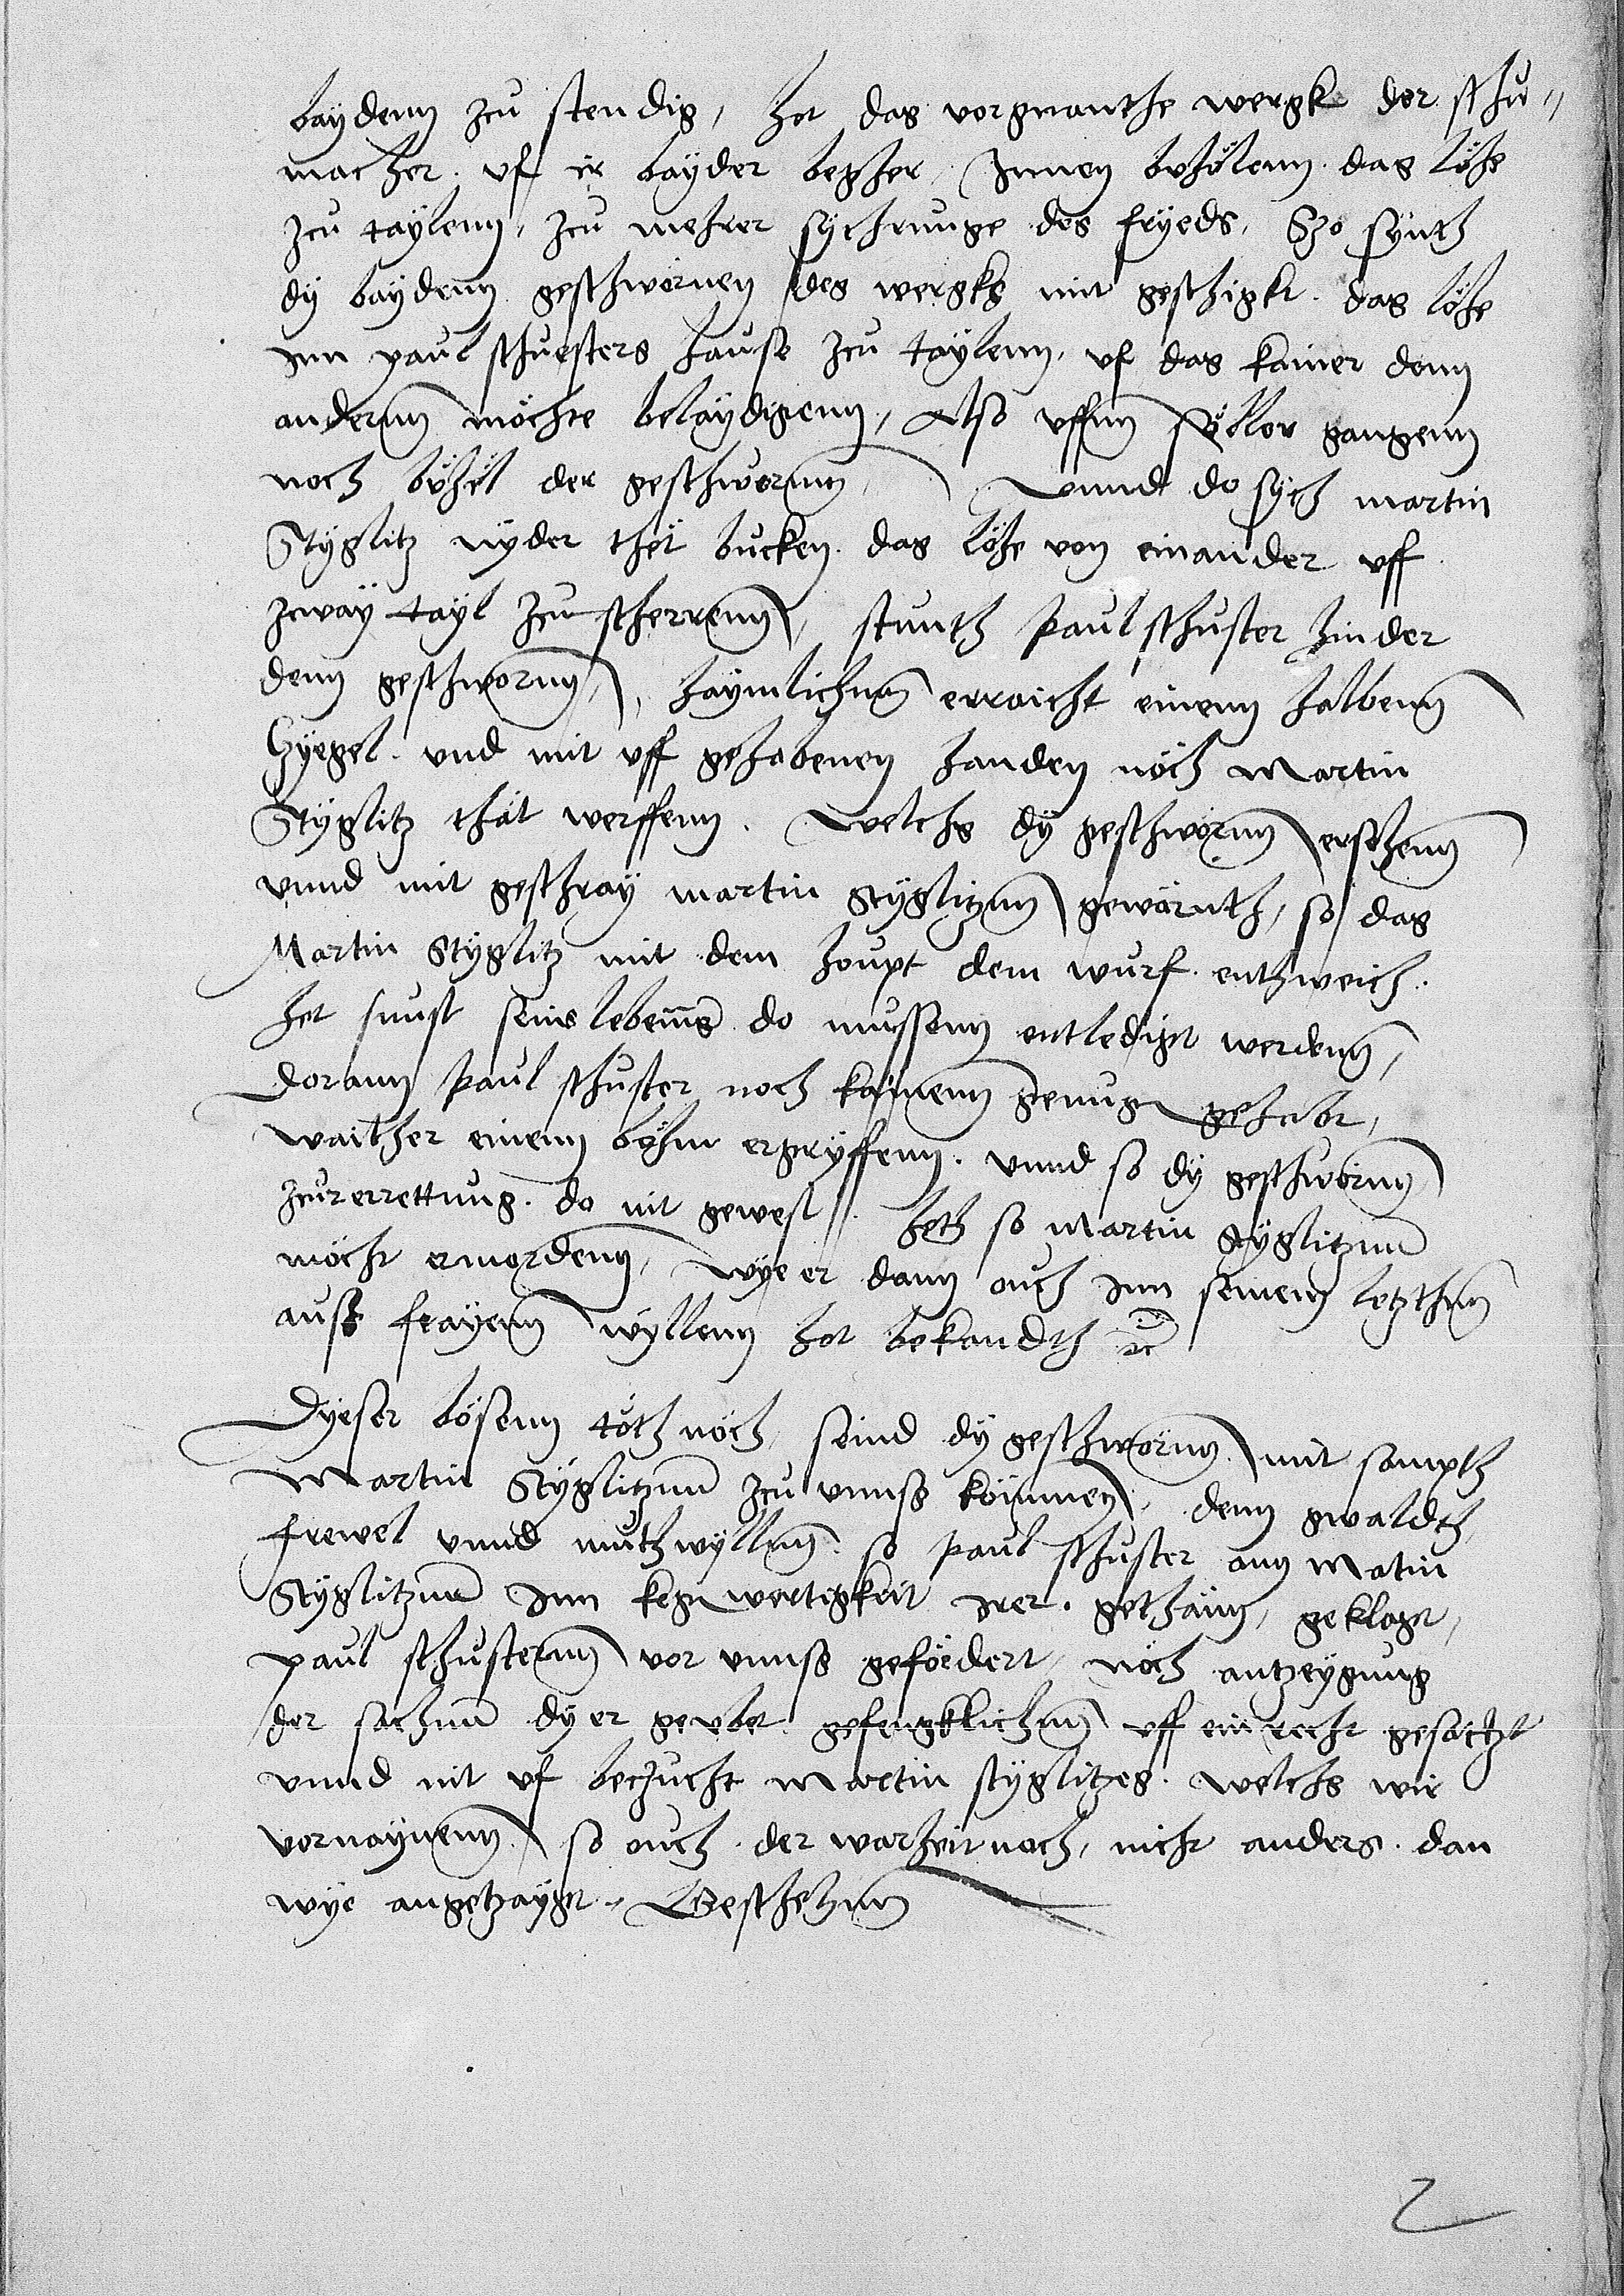 baydenn zcu stendig, hot das vorgnanthe wergk der schu-
macher. uf ir bayder begher, Innen bvhölenn. das löhe
zcu taylenn, zcu mehrer sychrunge des fryeds, Szo synth
dy baydenn geschwornen des wergks mit geschigkt. das löhe
Inn paul schuesters hause zcu taylenn, uf das kainer denn
andernn möchte belaydigenn, Also uffnn söller gangenn
noch bvhel der geschwornn, Unnd do sych martin
Styglitz nyder thet bucken. das löhe von einander uff
zcway tayl zcu scherrenn, stunth Paul schuster hinder
denn geschwornn, haymlichenn erraicht einenn halbenn
Zyegel. und mit uff gehabenen handen nöch Martin
Styglitz thät werffenn. Welchs dy geschwornn ersehenn
unnd mit geschray martin Styglitznn gewarnth, so das
Martin Styglitz mit dem houpt dem wurf. enthweich.
het sunst seins lebenns do mussenn entlediget werdenn,
Dorann Paul schuster noch kainenn genug gehabt,
waither einenn böhm ergryffenn. unnd so dy geschwornn
zcur errettung. do nit gewest. heth so Martin Styglitznn
möcht ermordenn, Wye er dann ouch Inn seinem letzthenn
auss frayenn wyllenn hot bekandth etc
Dyeser bösenn töth nöch, seind dy geschwornn. mit sampth
Martin Styglitznn zcu unnss kommen, denn gwaldth,
frewel unnd muthwyllenn. so Paul schuster ann Matin
Styglitznn Inn kegnwertigkeit Irer. gethann, geklaget,
paul schusternn vor unnss gefördert, nöch antzeygung
der sachenn dy er geubet. gefengklichenn uff ein recht gesatzt
unnd nit uf bezucht Martin styglitzes. welchs wir
vornaynenn. so ouch. der warheit noch, nicht anders. dan
wye angetzayget. Geschehenn
2